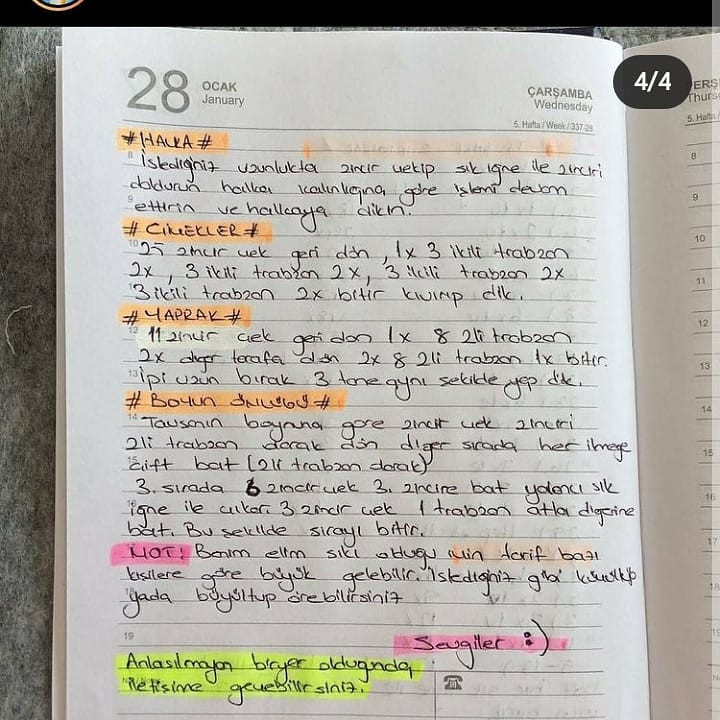 4/4
28 OCAK
January
ÇARŞAMBA
Wednesday
5. Hafta / Week / 337-28
# HALKA #
İstediğiniz uzunlukta zincir çekip sık iğne ile zinciri
doldurun halka kalınlığına göre işlemi devam
ettirin ve halkaya dikin.
# ÇİÇEKLER #
25 zincir çek geri dön, 1x 3 ikili trabzan
2x, 3 ikili trabzan 2x, 3 ikili trabzan 2x
3 ikili trabzan 2x bitir kıvırıp dik.
# YAPRAK #
11 zincir çek geri dön 1x 8 2li trabzan
2x diğer tarafa dön 2x 8 2li trabzan 1x bitir.
İpi uzun bırak 3 tane aynı şekilde yap dik.
# BOYUN ÖNLÜĞÜ #
Tavşanın boynuna göre zincir çek zinciri
2li trabzan olarak dön diğer sırada her ilmeğe
çift bat (2li trabzan olarak)
3. sırada 6 zincir çek 3. zincire bat yalancı sık
iğne ile çıkar. 3 zincir çek 1 trabzan atla diğerine
bat. Bu şekilde sırayı bitir.
NOT! Benim elim sıkı olduğu için tarif bazı
kişilere göre büyük gelebilir. İstediğiniz gibi küçültüp
yada büyültüp örebilirsiniz
Sevgiler :)
Anlaşılmayan biryer olduğunda,
iletişime geçebilirsiniz.
8
9
10
11
12
13
14
15
16
17
18
19
Thurs
5. Hafta
8
9
10
11
12
13
14
15
16
17
18
19